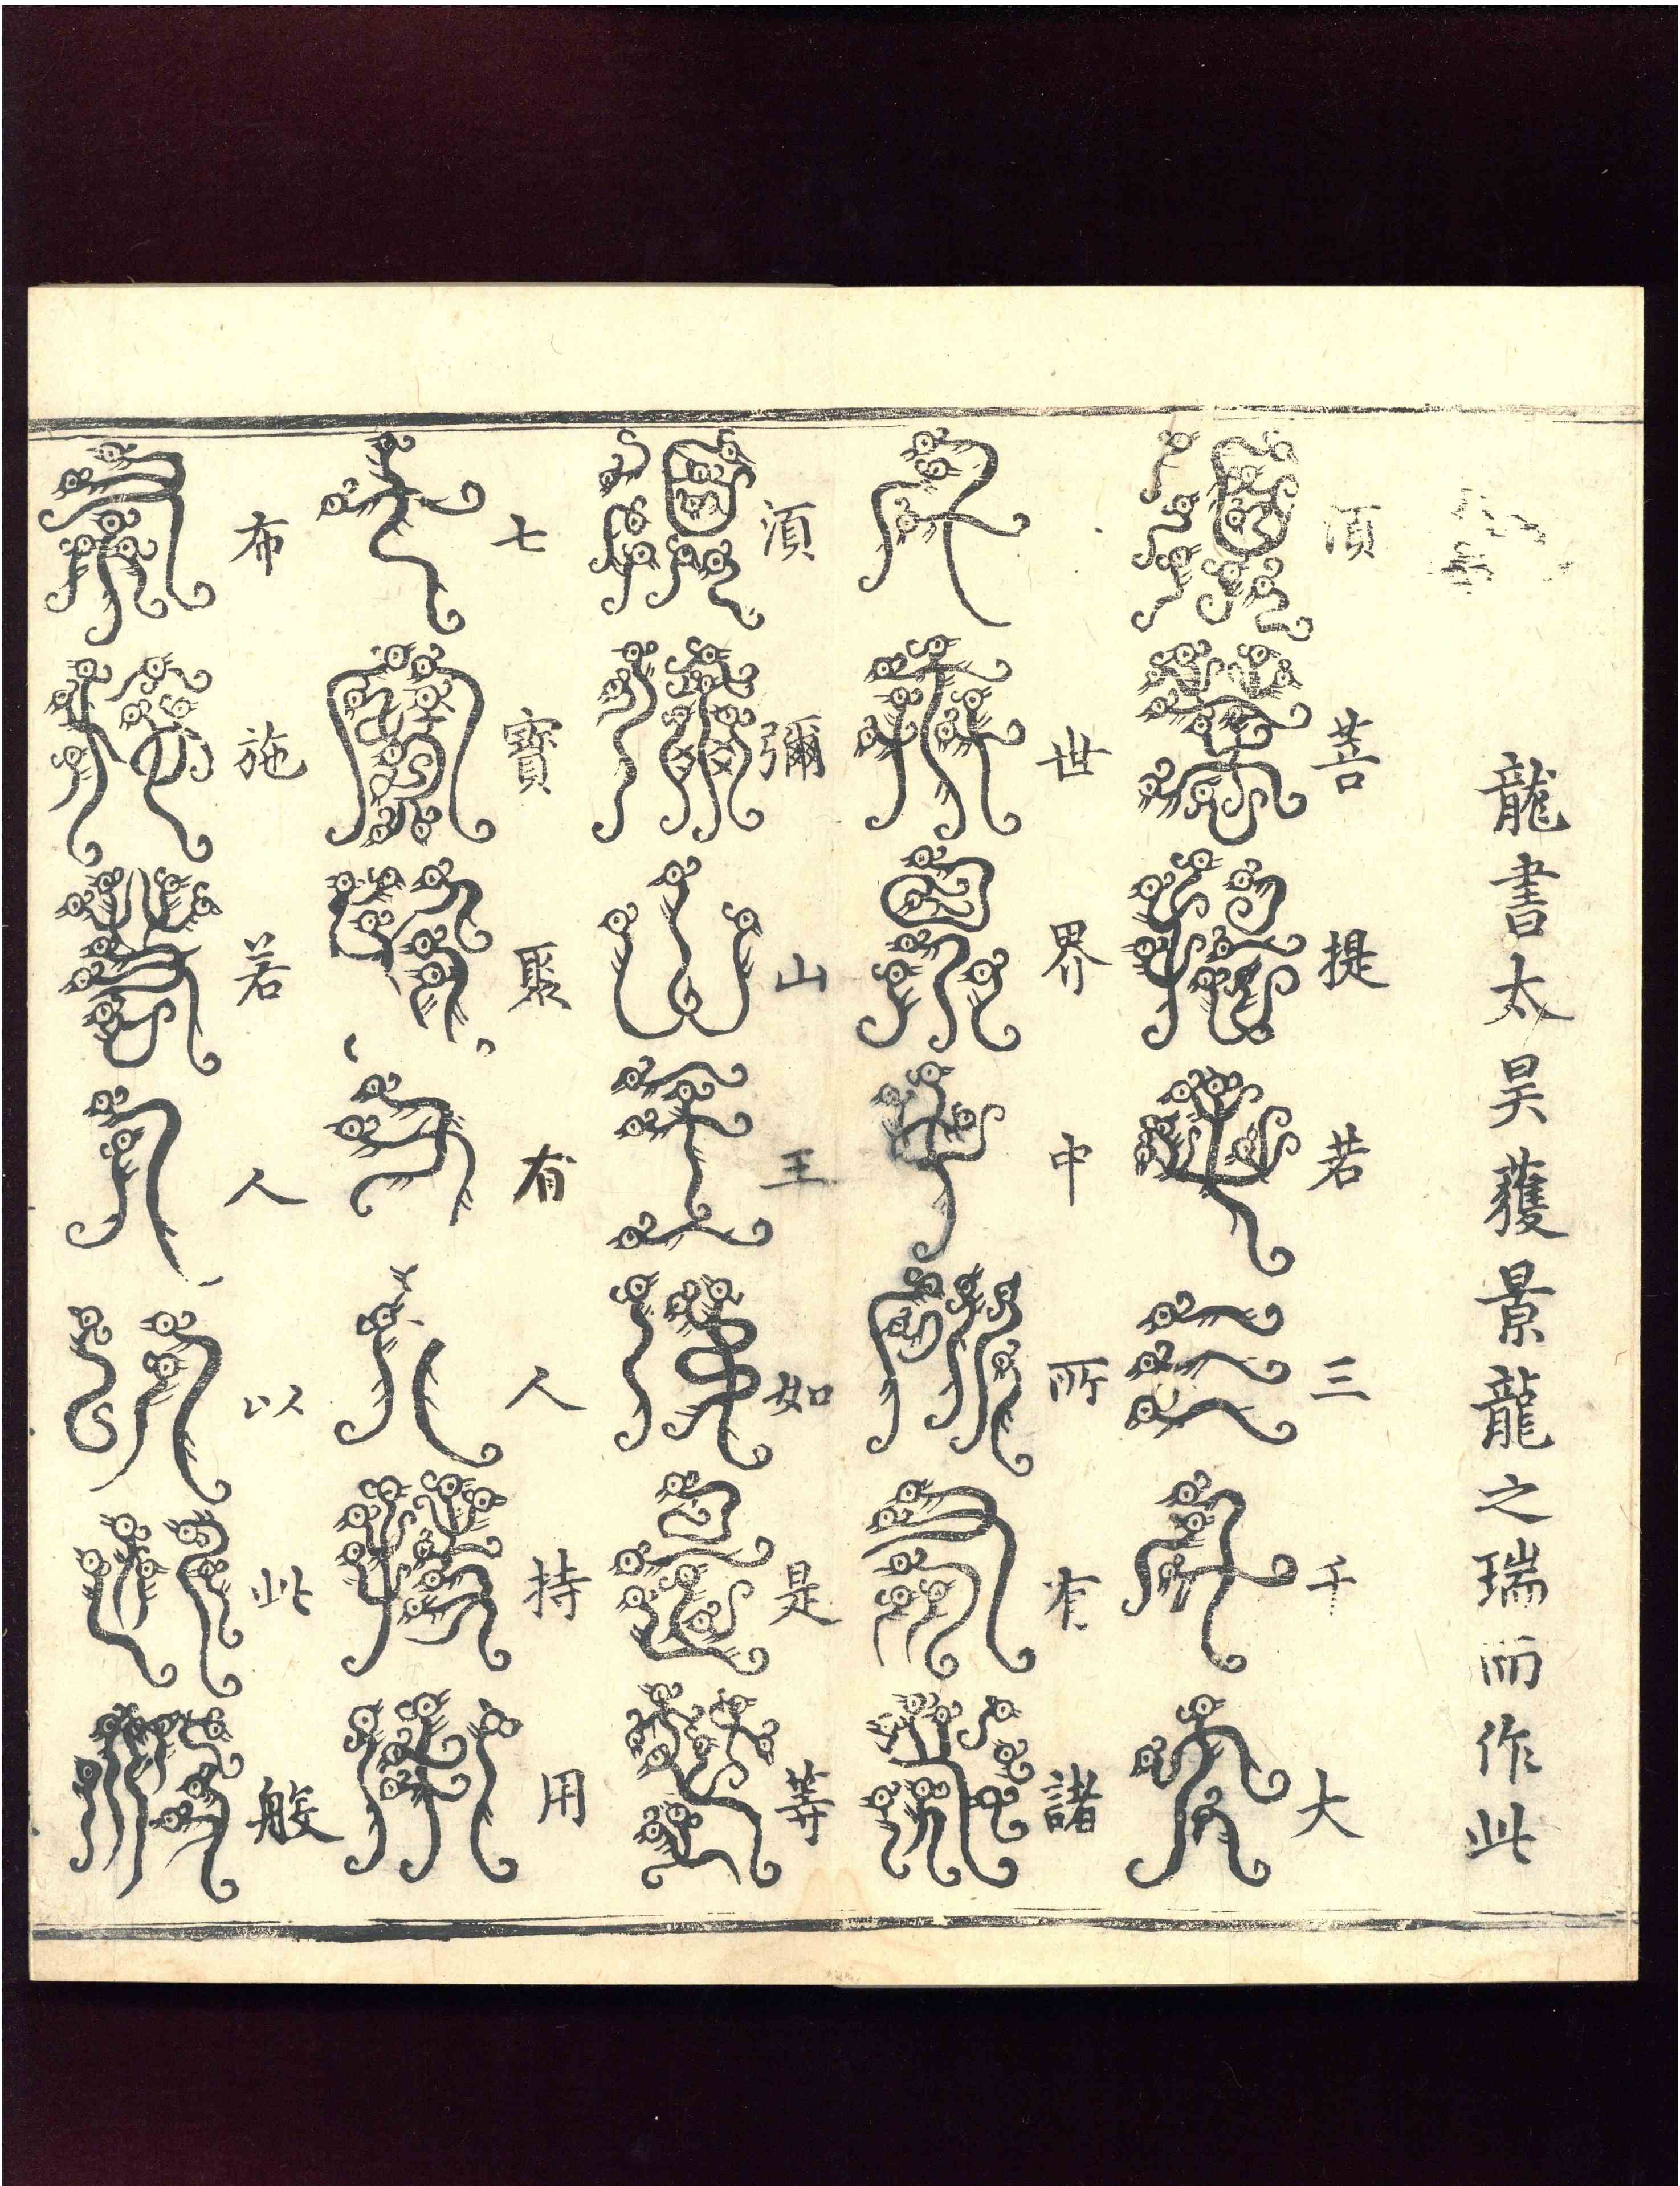 龍書太昊獲景龍之瑞而作此
須菩提若三千大
千世界中所有諸
須彌山王如是等
七寶聚有人持用
布施若人以此般